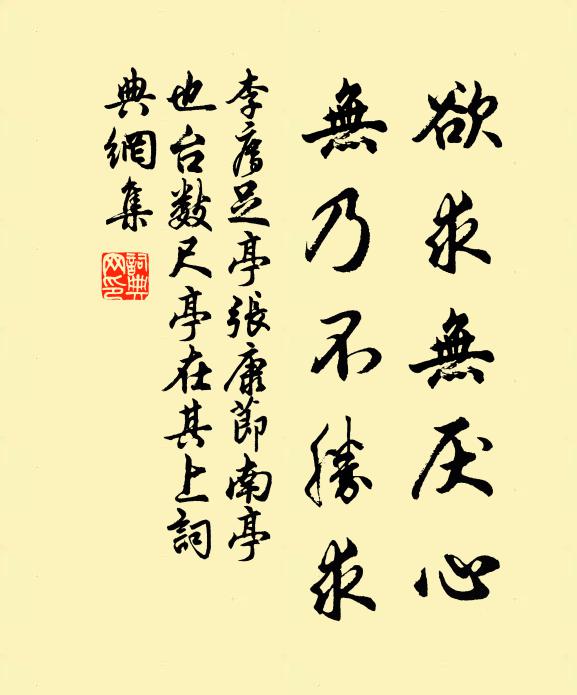 欲求無厌心
無乃不勝求
李膺足亭張康節南亭
也台数尺亭在其上詞
典網集
詞典
网印